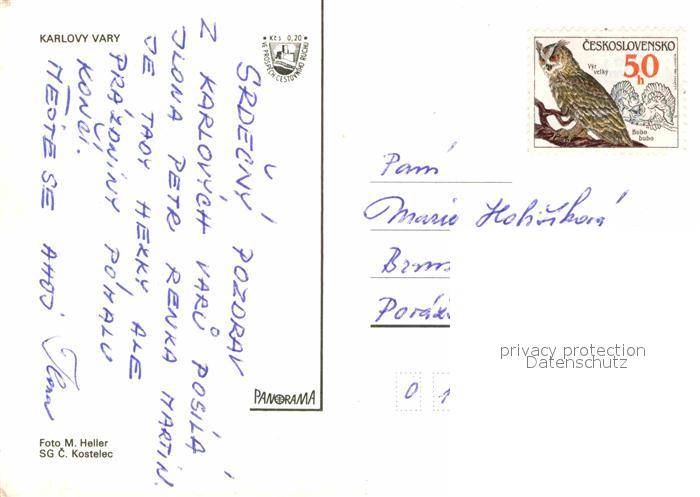 KARLOVY VARY
Kčs 0,20
VE PROSPĚCH CESTOVNÍHO RUCHU
SRDEČNÝ POZDRAV
Z KARLOVÝCH VARŮ POSÍLÁ
ILONA PETR RENKA MARTIN.
JE TADY HEZKY, ALE
PRÁZDNINY POMALU
KONČÍ.
MĚJTE SE AHOJ Ilona
Foto M. Heller
SG Č. Kostelec
PANORAMA
ČESKOSLOVENSKO
50 h
Výr
velký
Bubo
bubo
Paní
Marie
privacy protection
Datenschutz
0 1